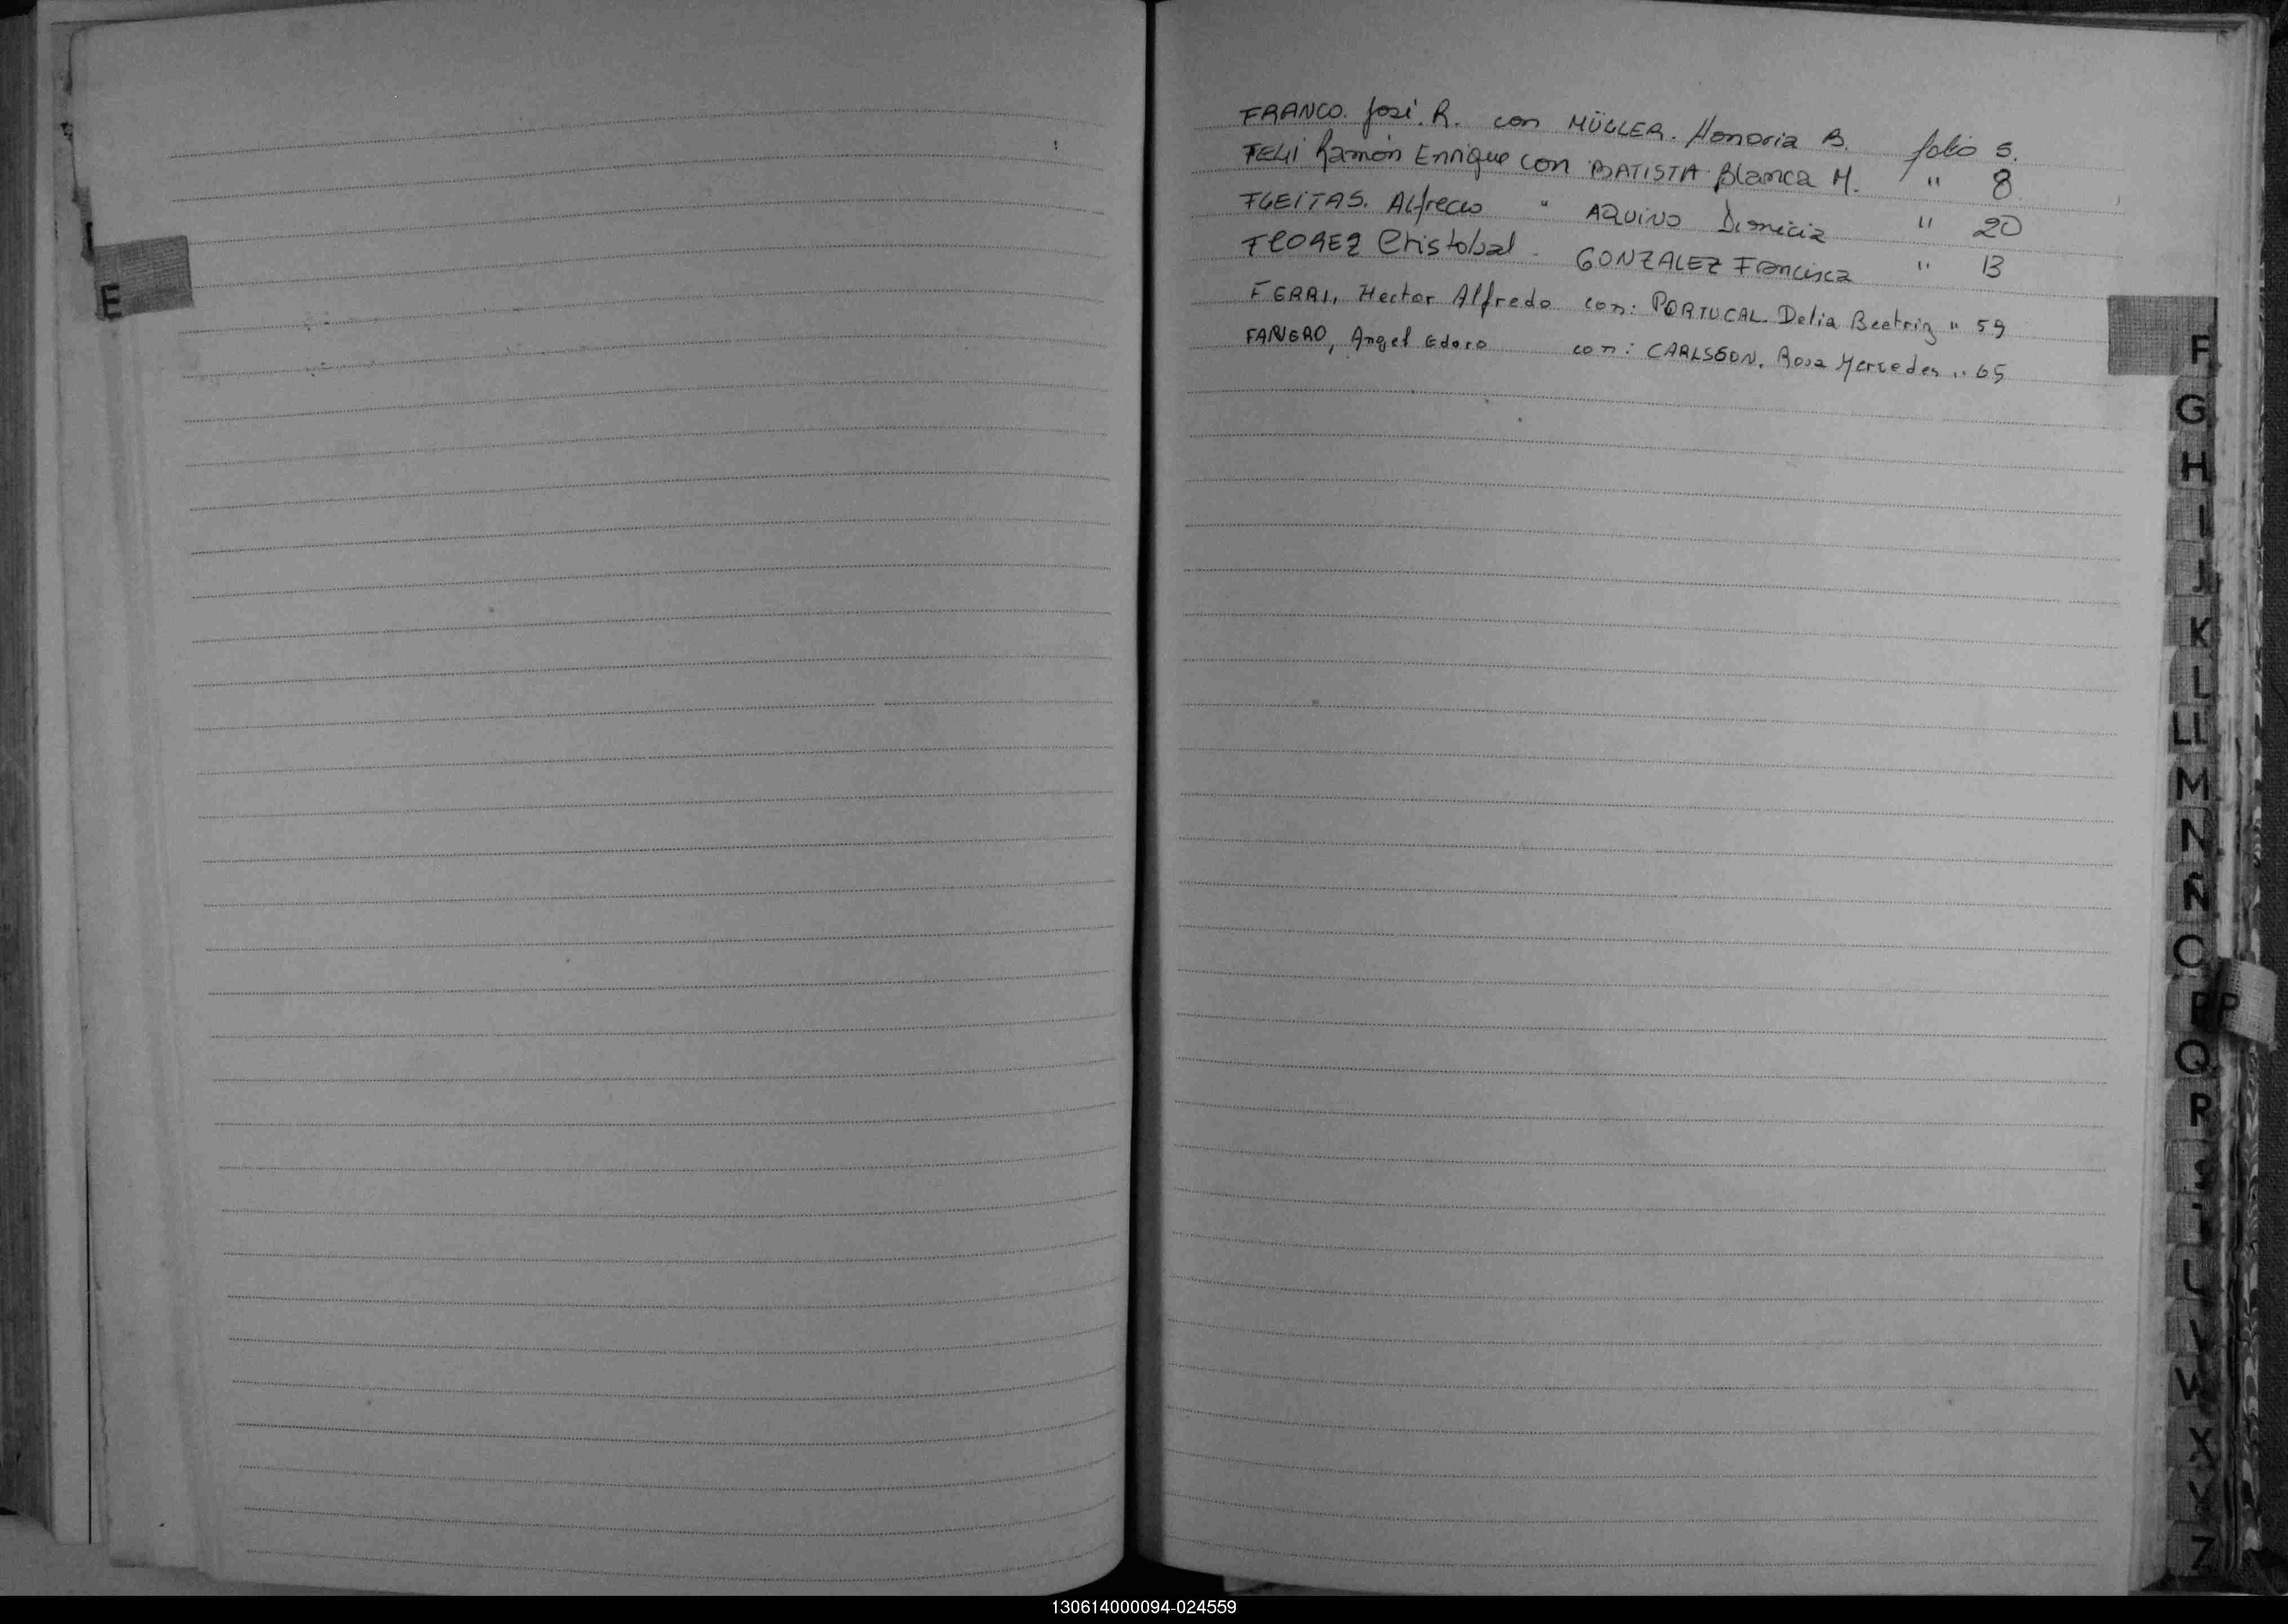 E
FRANCO. José. R. con MÜLLER. Honoria B. folio 5.
FELIÍ Ramón Enrique con BATISTA Blanca M. " 8
FLEITAS. Alfredo " AQUINO Dionicia " 20
FLOREZ Cristobal - GONZALEZ Francisca " 13
FERRI, Hector Alfredo con: PORTUCAL. Delia Beatriz " 59
FANERO, Angel con: CARLSSON. Rosa Mercedes " 65
F
G
H
I
J
K
L
LL
M
N
Ñ
O
P P
Q
R
S
T
U
V
W
X
Y
Z
130614000094-024559